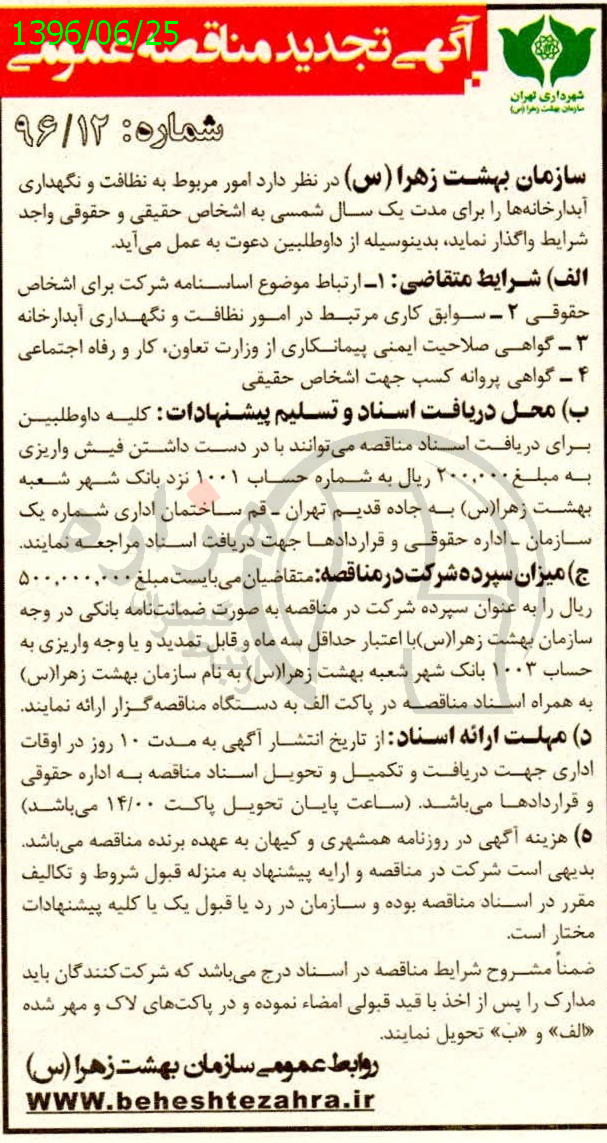 1396/06/25
آگهی تجدید مناقصه عمومی
شهرداری تهران
سازمان بهشت زهرا (س)
شماره: ۹۶/۱۲
سازمان بهشت زهرا (س) در نظر دارد امور مربوط به نظافت و نگهداری
آبدارخانه‌ها را برای مدت یک سال شمسی به اشخاص حقیقی و حقوقی واجد
شرایط واگذار نماید، بدینوسیله از داوطلبین دعوت به عمل می‌آید.
الف) شرایط متقاضی: ۱ـ ارتباط موضوع اساسنامه شرکت برای اشخاص
حقوقی ۲ ـ سوابق کاری مرتبط در امور نظافت و نگهداری آبدارخانه
۳ ـ گواهی صلاحیت ایمنی پیمانکاری از وزارت تعاون، کار و رفاه اجتماعی
۴ ـ گواهی پروانه کسب جهت اشخاص حقیقی
ب) محل دریافت اسناد و تسلیم پیشنهادات: کلیه داوطلبین
برای دریافت اسناد مناقصه می‌توانند با در دست داشتن فیش واریزی
به مبلغ ۲۰۰,۰۰۰ ریال به شماره حساب ۱۰۰۱ نزد بانک شهر شعبه
بهشت زهرا(س) به جاده قدیم تهران ـ قم ساختمان اداری شماره یک
سازمان ـ اداره حقوقی و قراردادها جهت دریافت اسناد مراجعه نمایند.
ج) میزان سپرده شرکت در مناقصه: متقاضیان می‌بایست مبلغ ۵۰۰,۰۰۰,۰۰۰
ریال را به عنوان سپرده شرکت در مناقصه به صورت ضمانتنامه بانکی در وجه
سازمان بهشت زهرا(س) با اعتبار حداقل سه ماه و قابل تمدید و یا وجه واریزی به
حساب ۱۰۰۳ بانک شهر شعبه بهشت زهرا(س) به نام سازمان بهشت زهرا(س)
به همراه اسناد مناقصه در پاکت الف به دستگاه مناقصه‌گزار ارائه نمایند.
د) مهلت ارائه اسناد: از تاریخ انتشار آگهی به مدت ۱۰ روز در اوقات
اداری جهت دریافت و تکمیل و تحویل اسناد مناقصه به اداره حقوقی
و قراردادها می‌باشد. (ساعت پایان تحویل پاکت ۱۴/۰۰ می‌باشد)
۵) هزینه آگهی در روزنامه همشهری و کیهان به عهده برنده مناقصه می‌باشد.
بدیهی است شرکت در مناقصه و ارایه پیشنهاد به منزله قبول شروط و تکالیف
مقرر در اسناد مناقصه بوده و سازمان در رد یا قبول یک یا کلیه پیشنهادات
مختار است.
ضمناً مشروح شرایط مناقصه در اسناد درج می‌باشد که شرکت‌کنندگان باید
مدارک را پس از اخذ با قید قبولی امضاء نموده و در پاکت‌های لاک و مهر شده
«الف» و «ب» تحویل نمایند.
روابط عمومی سازمان بهشت زهرا (س)
WWW.beheshtezahra.ir